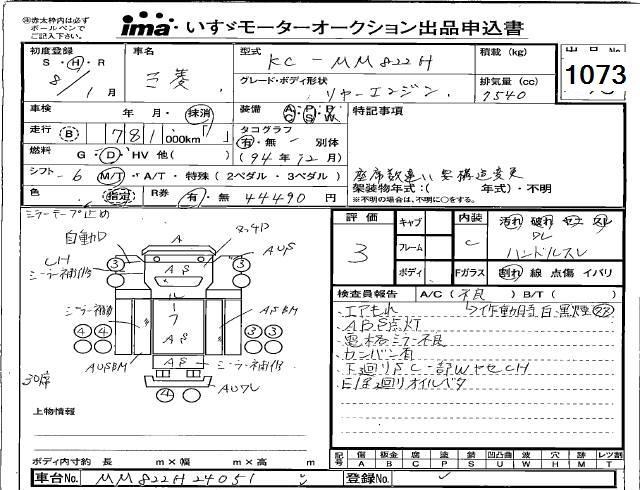 ※赤太枠内は必ずボールペンでご記入下さい。
ima いすゞモーターオークション出品申込書
初度登録 S・H・R 8/1月
車名 三菱
型式 KC-MM822H
積載 (kg)
出品No. 1073
グレード・ボディ形状 リヤーエンジン
排気量 (cc) 7540
車検 年・月・抹消
装備
特記事項
走行 B 781,000km
タコグラフ 有・無 別体 (94年12月)
燃料 G・D・HV 他( )
シフト -6 M/T・A/T・特殊 (2ペダル・3ペダル)
座席数違い 要構造変更
架装物年式:( 年式)・不明
※不明の場合は、不明に○をする。
色 指定
R券 有・無 44490円
ミラーテープ止め
自動D
LH
ミラー補修
AUS
ASBM
AUSBM
ミラー補修
AUワレ
30席
ルーフ
AS
上物情報
ボディ内寸約 長 m×幅 m×高 m
評価 3
キャブ
フレーム
ボディ
内装 C
汚れ 破れ セエ スレ
ハンドルスレ
Fガラス 割れ 線 点傷 イバリ
検査員報告 A/C(不良) B/T( )
・エアもれ
・ABS点灯
・電格ミラー不良
・カンバン有
・下廻りSC一部WヤセCH
・E/G廻りオイルベタ
記号 傷A 鈑金B 腐C 塗P 錆S 凹凸曲U 波W 穴H 跡M レツ割T
車台No. MM822H24051
登録No.